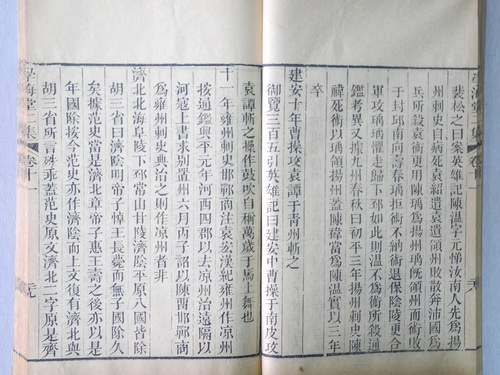 裴松之曰案英雄記陳溫字元悌汝南人先為揚
州刺史自病死袁紹遣袁遺領州敗散奔沛國為
兵所殺袁術更用陳瑀為揚州瑀既領州而術敗
于封邱南向壽春瑀拒術不納術退保陰陵更合
軍攻瑀瑀懼走歸下邳如此則溫不為術所殺通
鑑考異又據九州春秋曰初平三年揚州刺史陳
禕死術以瑀領揚州蓋陳禕當為陳溫實以三年
卒
建安十年曹操攻袁譚于青州斬之
御覽三百五引英雄記曰建安中曹操于南皮攻
袁譚斬之操作鼓吹自稱萬歲于馬上舞也
十一年雍州刺史邯鄲商注袁宏漢紀雍州作凉州
按通鑑興平元年河西四郡以去凉州治遠隔以
河寇上書求別置州六月丙子詔以陳留邯鄲商
為雍州刺史典治之則作凉州者非
濟北北海阜陵下邳常山甘陵濟陰平原八國皆除
胡三省曰濟陰明帝子悼王長薨而無子國除久
矣據范史當是濟北章帝子惠王壽之後亦以是
年國除按今范史亦作濟陰而上文復有濟北與
胡三省所言殊乖蓋范史原文濟北二字原是齊
學海堂二集
卷十一